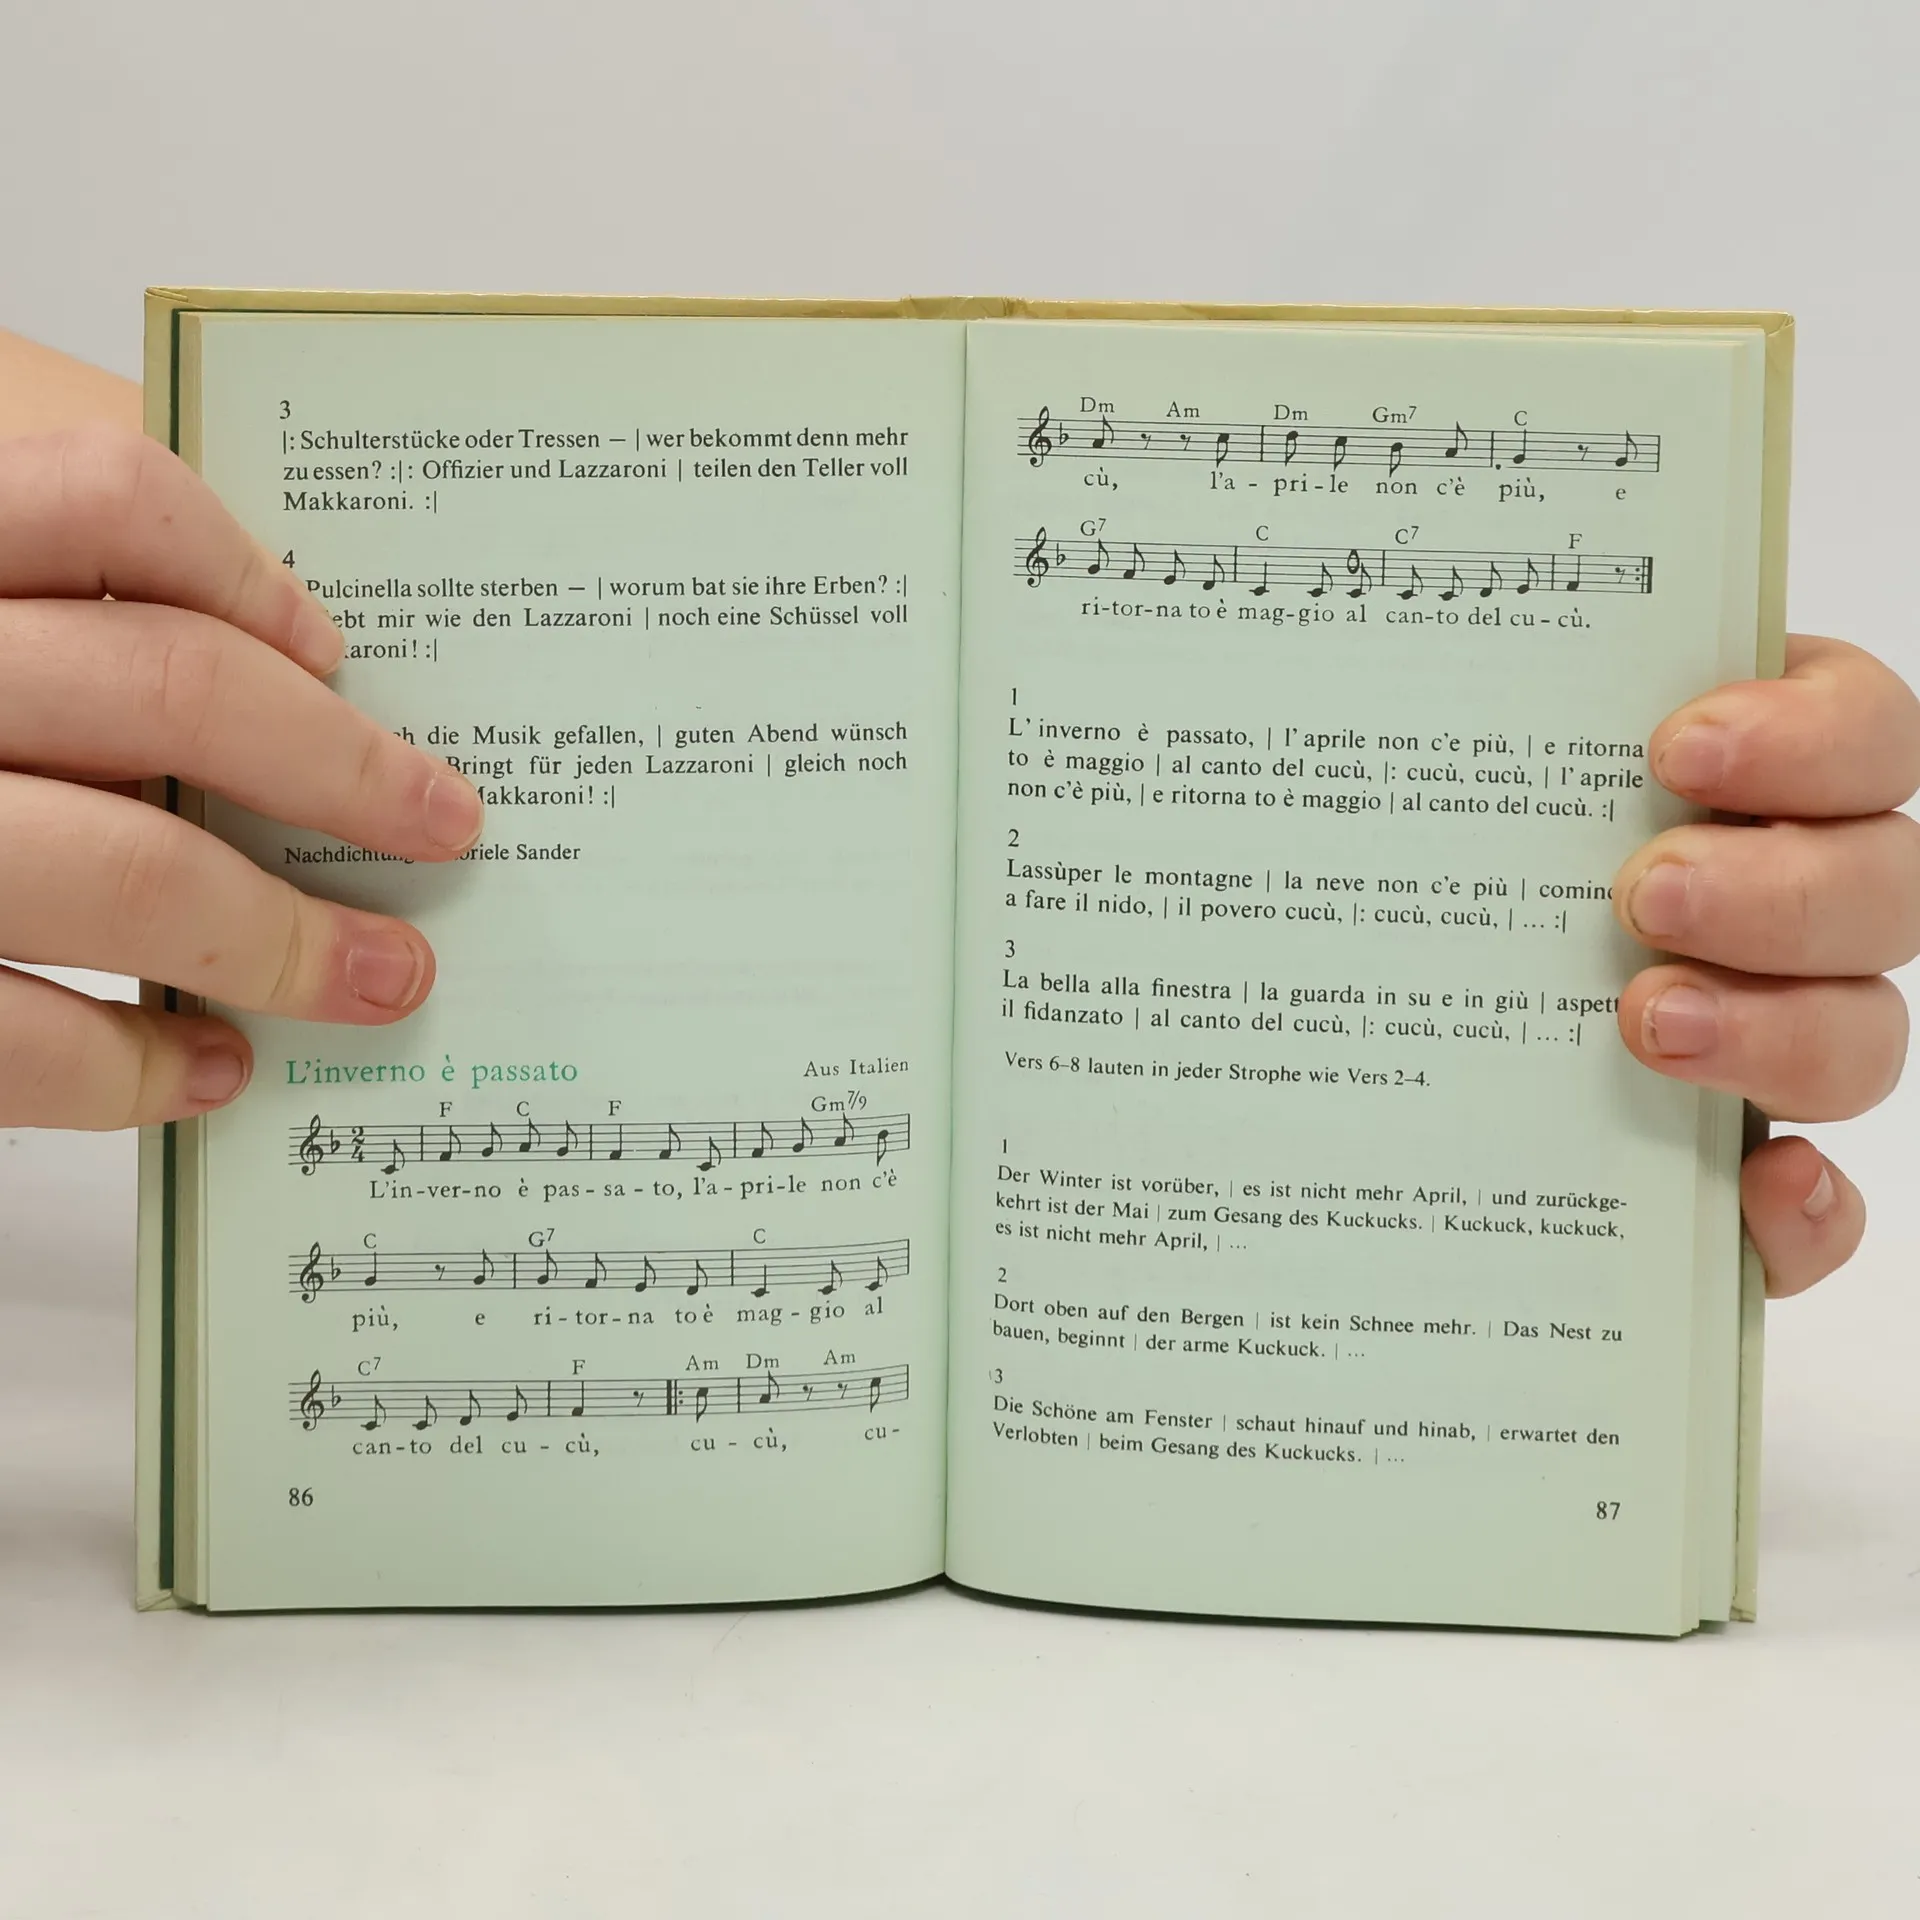 3
|: Schulterstücke oder Tressen – | wer bekommt denn mehr
zu essen? :|: Offizier und Lazzaroni | teilen den Teller voll
Makkaroni. :|
4
Pulcinella sollte sterben – | worum bat sie ihre Erben? :|
mir wie den Lazzaroni | noch eine Schüssel voll
die Musik gefallen, | guten Abend wünsch
Bringt für jeden Lazzaroni | gleich noch
Makkaroni! :|
Sander
L'inverno è passato
Aus Italien
F C F Gm7/9
2
4
L'in-ver-no è pas-sa-to, l'a-pri-le non c'è
C G7 C
più, e ri-tor-na to è mag-gio al
C7 F Am Dm Am
can-to del cu-cù, cu-cù, cu-
86
Dm Am Dm Gm7 C
cù, l'a-pri-le non c'è più, e
G7 C C7 F
ri-tor-na to è mag-gio al can-to del cu-cù.
1
L' inverno è passato, | l' aprile non c'e più, | e ritorna
to è maggio | al canto del cucù, |: cucù, cucù, | l' aprile
non c'è più, | e ritorna to è maggio | al canto del cucù. :|
2
Lassùper le montagne | la neve non c'e più |
a fare il nido, | il povero cucù, |: cucù, cucù, | ... :|
3
La bella alla finestra | la guarda in su e in giù |
il fidanzato | al canto del cucù, |: cucù, cucù, | ... :|
Vers 6–8 lauten in jeder Strophe wie Vers 2–4.
1
Der Winter ist vorüber, | es ist nicht mehr April, | und zurückge-
kehrt ist der Mai | zum Gesang des Kuckucks. | Kuckuck, kuckuck,
es ist nicht mehr April, | ...
2
Dort oben auf den Bergen | ist kein Schnee mehr. | Das Nest zu
bauen, beginnt | der arme Kuckuck. | ...
3
Die Schöne am Fenster | schaut hinauf und hinab, | erwartet den
Verlobten | beim Gesang des Kuckucks. | ...
87